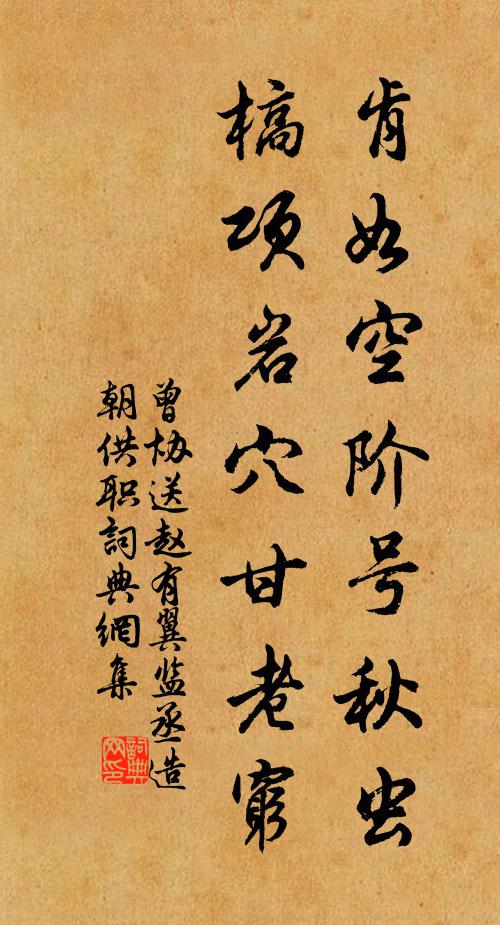 肯如空阶号秋虫
槁项岩穴甘老穷
曾协送赵有翼监丞造
朝供职詞典網集
詞典
网印